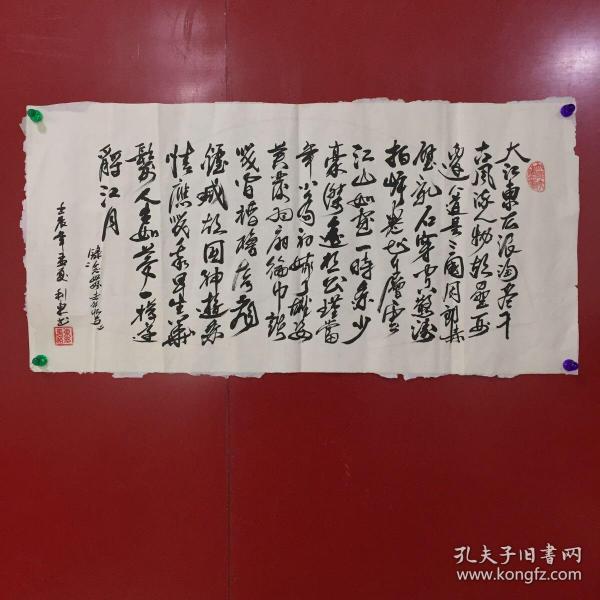 大江東去浪淘尽千
古風流人物故壘西
邊人道是三國周郎赤
壁乱石穿空驚濤
拍岸卷起千層雪
江山如畫一時多少
豪傑遥想公瑾當
年小喬初嫁了雄姿
英發羽扇綸巾談
笑間檣櫓
故國神遊多
情應笑我早生華
髮人生如夢一樽還
酹江月
壬辰年孟夏利忠书
孔夫子旧书网
www.kongfz.com